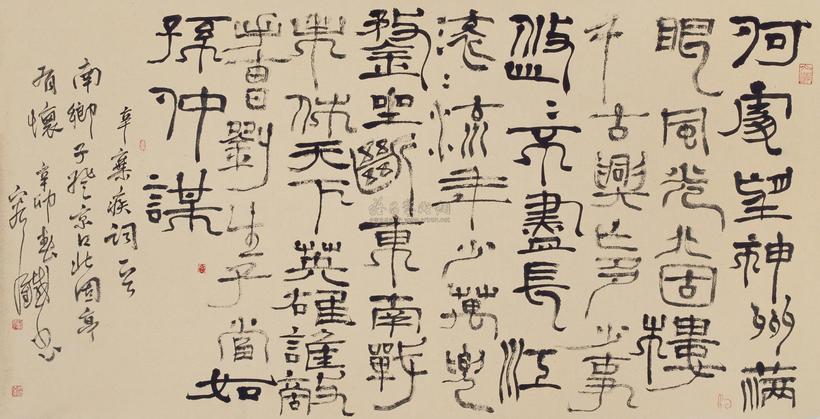 何處望神州满
眼風光北固樓
千古興亡多少事
悠々不盡長江
滚々流年少萬兜
鍪坐斷東南戰
未休天下英雄誰敵
手曹劉生子當如
孫仲謀
辛棄疾詞
南鄉子登京口北固亭
有懷 辛卯春
書